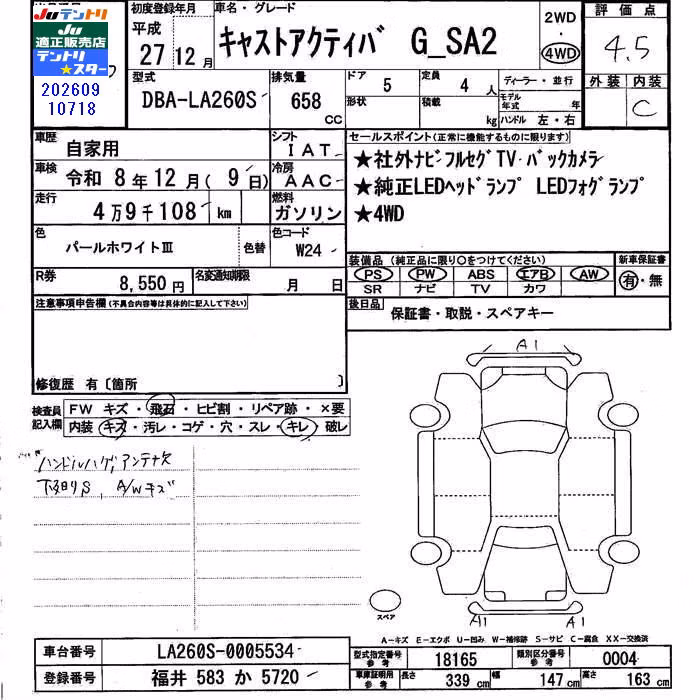 Juテントリ
Ju
適正販売店
テントリ
★スター
202609
10718
初度登録年月
平成
27 12月
車名・グレード
キャストアクティバ G_SA2
2WD
・
4WD
評価点
4.5
外装 内装
C
型式
DBA-LA260S
排気量
658
CC
ドア
5
形状
定員
4人
積載
kg
ディーラー・並行
モデル年式 年
ハンドル 左・右
車歴
自家用
シフト
IAT
車検
令和 8年12月(9日)
冷房
AAC
走行
4万9千108 km
燃料
ガソリン
色
パールホワイトⅢ
色替
色コード
W24
R券
8,550円
名変通知期限
月 日
セールスポイント(正常に機能するものに限ります)
★社外ナビ・フルセグTV・バックカメラ
★純正LEDヘッドランプ LEDフォグランプ
★4WD
装備品(純正品に限り○をつけてください)
PS PW ABS エアB AW
SR ナビ TV カワ
新車保証書
有・無
後日品
保証書・取説・スペアキー
注意事項申告欄(不具合内容等は具体的に記入して下さい)
修復歴 有〔箇所 〕
検査員記入欄
FW キズ・飛石・ヒビ割・リペア跡・×要
内装 キズ・汚レ・コゲ・穴・スレ・キレ・破レ
ハンドルハゲ,アンテナ欠
下廻りS, A/Wキズ
A1
スペア
A1 A1
A-キズ E-エクボ U-凹み W-補修跡 S-サビ C-腐食 XX-交換済
車台番号
LA260S-0005534
登録番号
福井 583 か 5720
型式指定番号 参考
18165
類別区分番号 参考
0004
車庫証明用 参考
長さ 339cm 幅 147cm 高さ 163cm